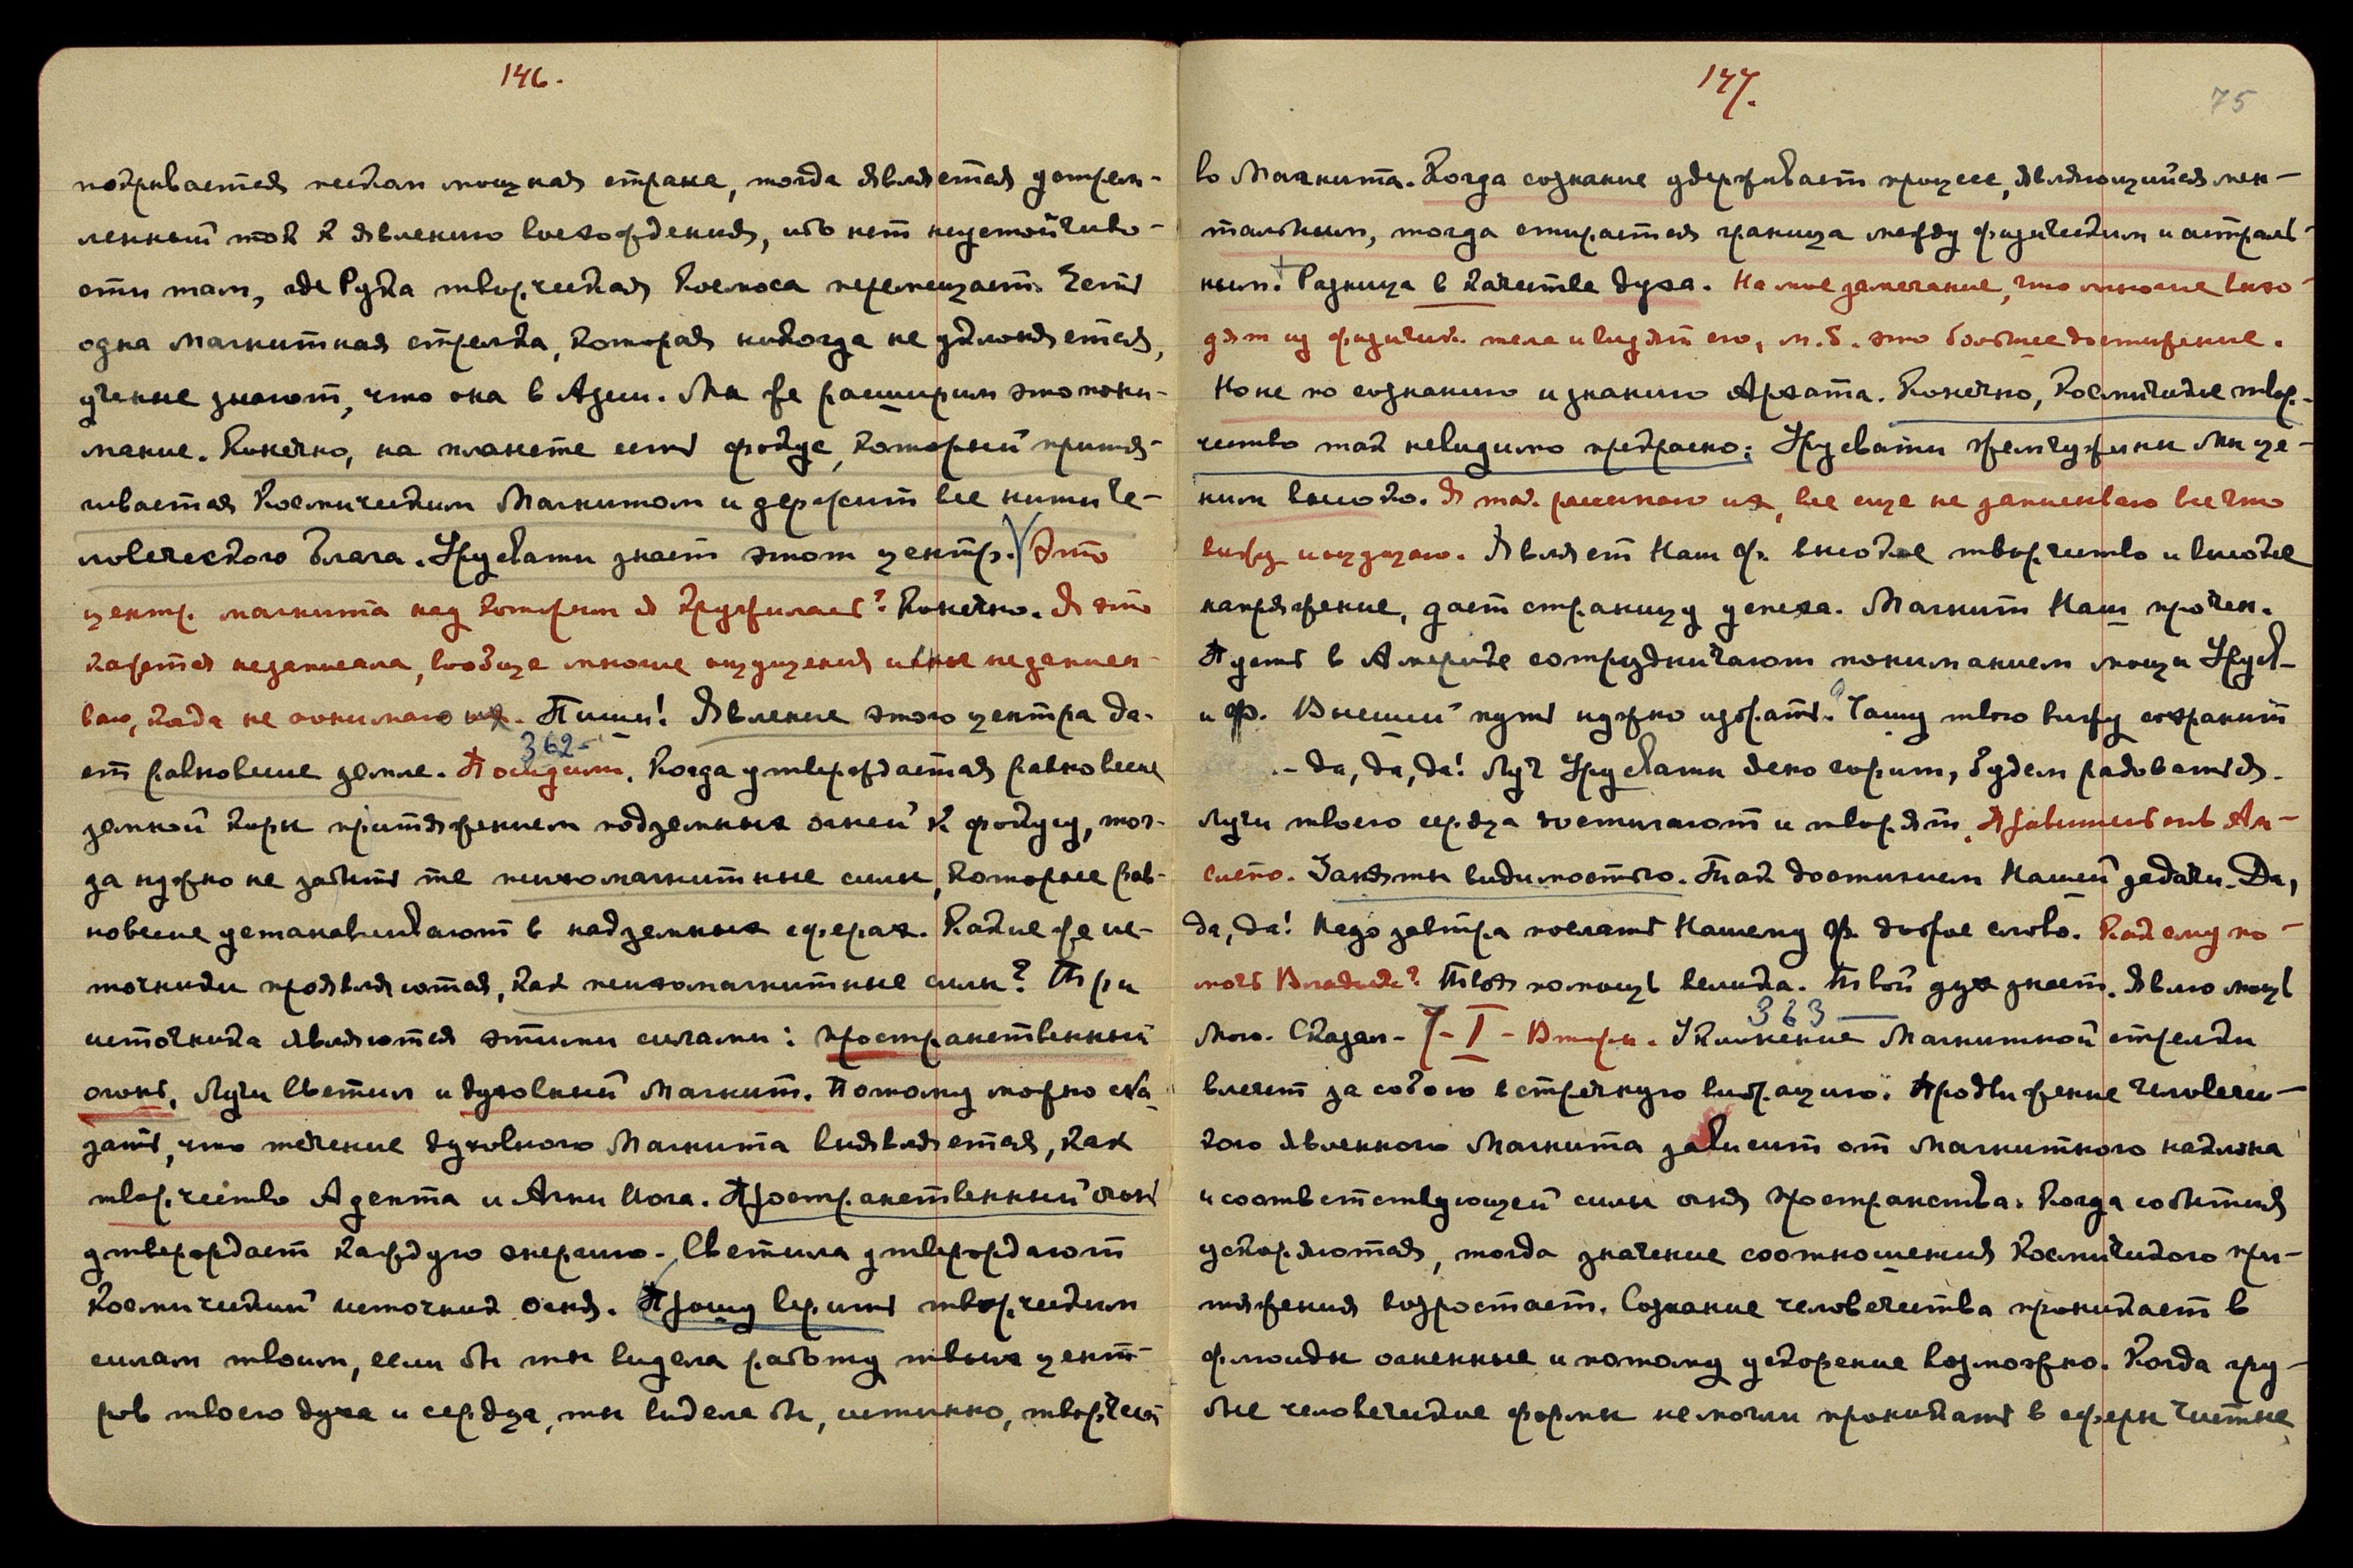 146.
покрывается песком мощная страна, тогда является устрем-
ленный ток к явлению восхождения, ибо нет неустойчиво-
сти там, где Рука творческая Космоса перемещает. Есть
одна магнитная стрелка, которая никогда не уклоняется,
ученые знают, что она в Азии. Мы же расширим это пони-
мание. Конечно, на планете есть фокус, который притя-
гивается Космическим Магнитом и держит все нити че-
ловеческого блага. Урусвати знает этот центр. Это
центр. магнита над которым я кружилась? Конечно. Я это
кажется не записала, вообще многие ощущения не записы-
ваю, когда не понимаю их. Пиши! Явление этого центра да-
362-
ет равновесие земле. Посидим. Когда утверждается равновесие
земной коры притяжением подземных огней к фокусу, тог-
да нужно не забыть те психомагнитные силы, которые рав-
новесие устанавливают в надземных сферах. Какие же ис-
точники проявляются, как психомагнитные силы? Три
источника являются этими силами: пространственный
огонь, лучи Светил и духовный Магнит. Потому можно ска-
зать, что течение духовного Магнита выявляется, как
творчество Адепта и Агни Йога. Пространственный огонь
утверждает каждую энергию. Светила утверждают
Космический источник огня. Прошу верить творческим
силам твоим, если бы ты видела работу твоих цент-
ров твоего духа и сердца, ты видела бы, истинно, творчест
147.
75
во Магнита. Когда сознание удерживает процесс, являющийся мен-
тальным, тогда стирается граница между физическим и астраль-
ным. Разница в качестве духа. На мое замечание, что многие выхо-
дят из физическ. тела и видят его, м.б. это большее достижение.
Но не по сознанию и знанию Архата. Конечно, Космическое твор-
чество так невидимо прекрасно; Урусвати жемчужины Мы це-
ним высоко. Я так понимаю их, все еще не записываю все что
вижу и ощущаю. Являет Наш Ф. высокое творчество и высокое
напряжение, дает страницу успеха. Магнит Наш прочен.
Пусть в Америке сотрудничают пониманием мощи Урусв.
и Ф. Внешний путь нужно избрать. Чашу твою вижу сохранит
- да, да, да! Луч Урусвати ясно горит, будем радоваться.
Лучи твоего сердца достигают и творят. Правительств Ан-
глийско. Заняты видимостью. Так достигнем Нашей задачи. Да,
да, да! Надо завтра послать Нашему Ф. доброе слово. Как ему по-
мочь Владыка? Твоя помощь велика. Твой дух знает. Явлю мощь
363
Мою. Сказал- 7-I- Вторн. Уклонение Магнитной стрелки
влечет за собою встречную вибрацию. Продвижение человечес-
кого явленного Магнита зависит от магнитного наклона
и соответствующей силы огня пространства. Когда события
ускоряются, тогда значение соотношения Космического при-
тяжения возростает. Сознание человечества проникает в
флюиды огненные и потому ускорение возможно. Когда гру-
бые человеческие формы не могли проникать в сферы чистые